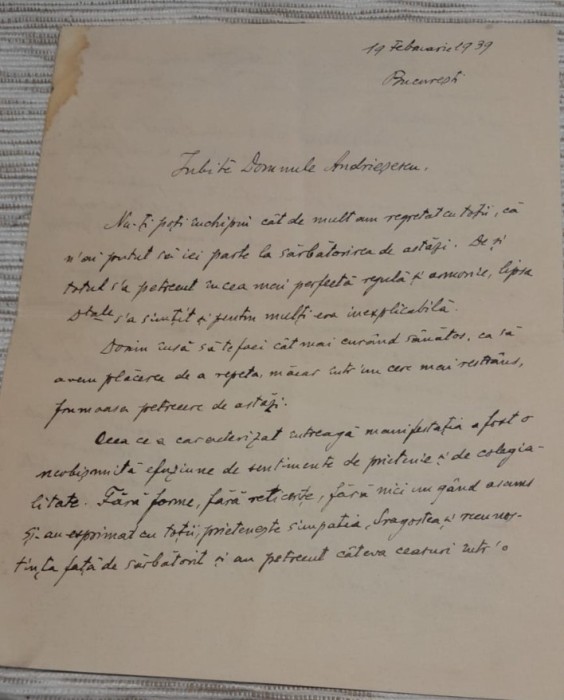 19 Februarie 1939
București
Iubite Domnule Andrieșescu,
Nu-ți poți închipui cât de mult am regretat cu toții, că
n'ai putut să iei parte la sărbătorirea de astăzi. De și
totul s'a petrecut în cea mai perfectă regulă și armonie, lipsa
Dtale s'a simțit și pentru mulți era inexplicabilă.
Dorim însă să te faci cât mai curând sănătos, ca să
avem plăcerea de a repeta, măcar într'un cerc mai restrâns,
frumoasa petrecere de astăzi.
Ceea ce a caracterizat întreagă manifestația a fost o
neobișnuită efuziune de sentimente de prietenie și de colegia-
litate. Fără forme, fără reticențe, fără nici un gând ascuns
și-au exprimat cu toții, prietenește simpatia, dragostea și recunoș-
tința față de sărbătorit și au petrecut câteva ceasuri într'o